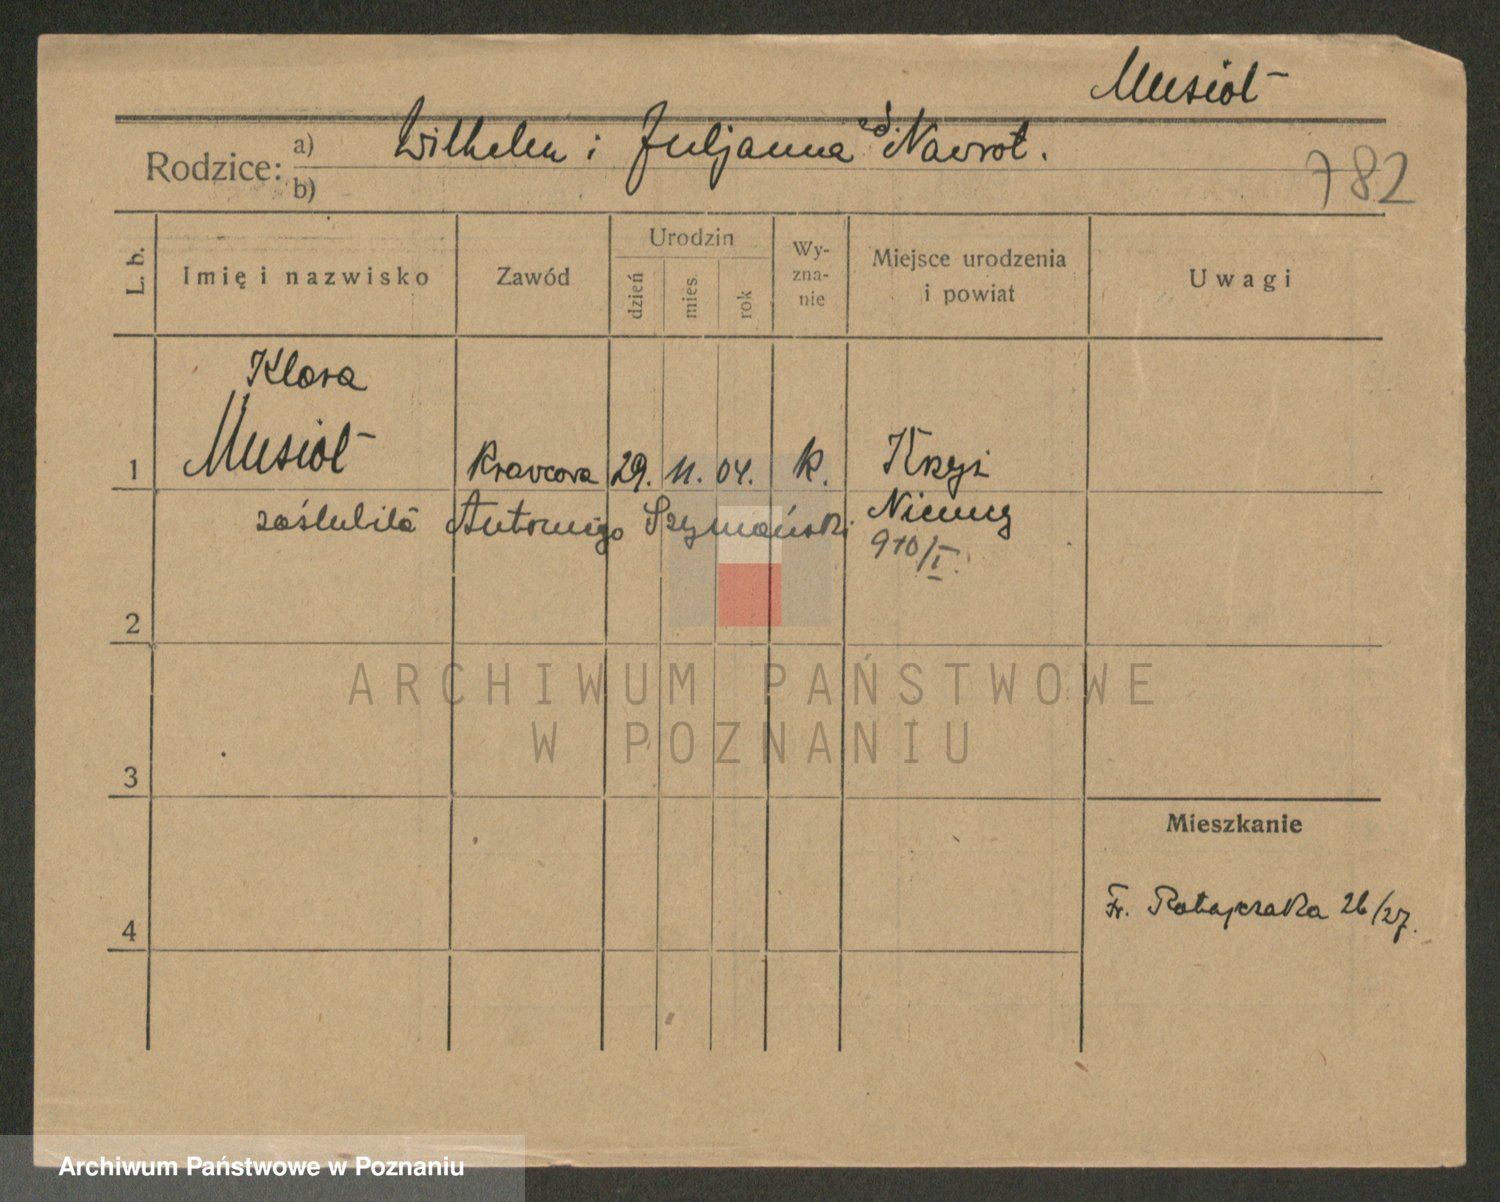 Musioł
Rodzice: a) Wilhelm i Juljanna zd. Nawrot.
b)
782
L. b.
Imię i nazwisko
Zawód
Urodzin
dzień
mies.
rok
Wy-
zna-
nie
Miejsce urodzenia
i powiat
Uwagi
Klara
1 Musioł krawcowa 29. 11. 04. k.
Niemcy
zaślubiła Antoniego Szymański
910/I.
2
ARCHIWUM PAŃSTWOWE
W POZNANIU
3
Mieszkanie
Fr. Ratajczaka 26/27.
4
Archiwum Państwowe w Poznaniu